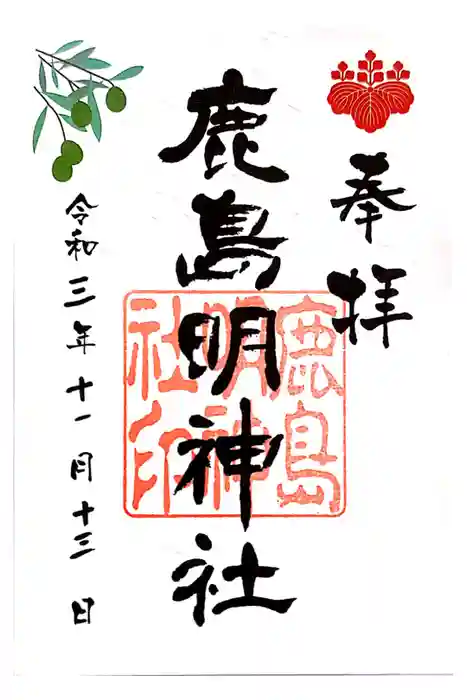 奉拝
鹿島明神社
鹿島
明神
社印
令和三年十一月十三日